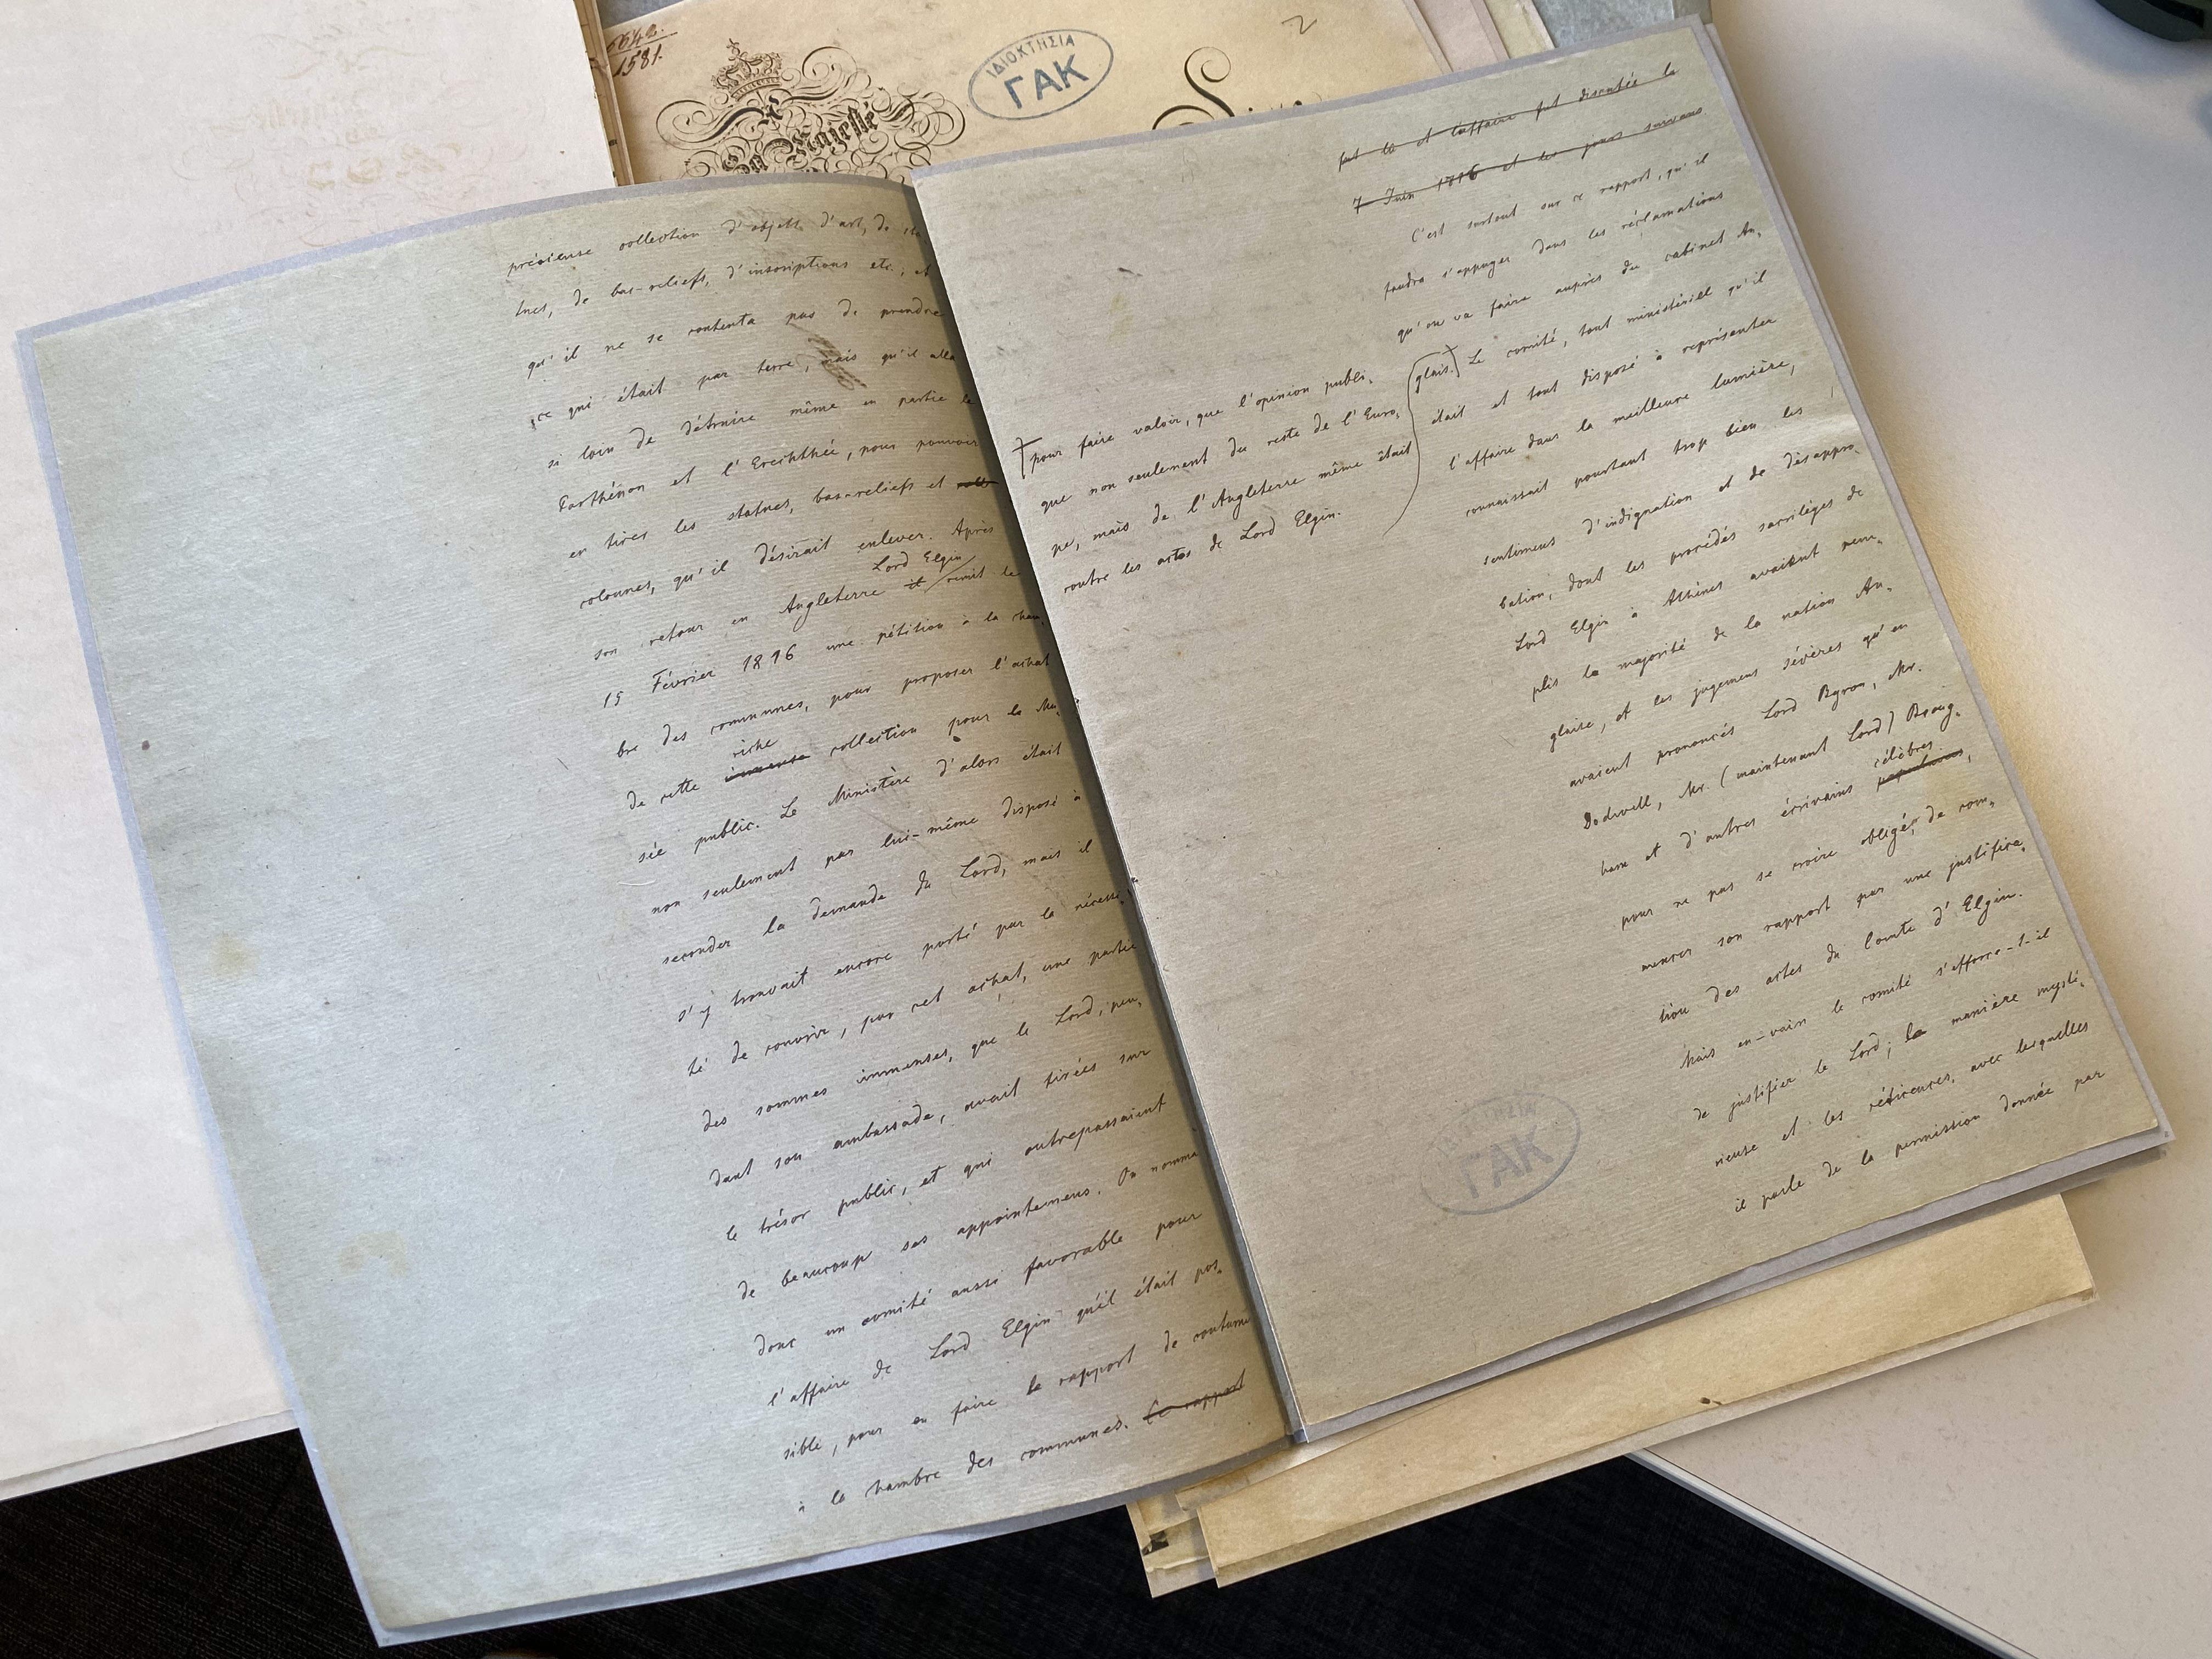 6642.
1581.
Sa Majesté
ΙΔΙΟΚΤΗΣΙΑ
ΓΑΚ
2
précieuse collection d'objets d'art, de sta-
tues, de bas-reliefs, d'inscriptions etc.; et
qu'il ne se contenta pas de prendre
ce qui était par terre, mais qu'il alla
si loin de détruire même en partie le
Parthénon et l'Erechthée, pour pouvoir
en tirer les statues, bas-reliefs et
colonnes, qu'il désirait enlever. Après
son retour en Angleterre il Lord Elgin remit le
15 Février 1816 une pétition à la cham-
bre des communes, pour proposer l'achat
de cette immense riche collection pour le Mu-
sée public. Le Ministère d'alors était
non seulement par lui-même disposé à
seconder la demande du Lord, mais il
s'y trouvait encore porté par la nécessi-
té de couvrir, par cet achat, une partie
des sommes immenses, que le Lord, pen-
dant son ambassade, avait tirées sur
le trésor public, et qui outrepassaient
de beaucoup ses appointemens. On nomma
donc un comité aussi favorable pour
l'affaire de Lord Elgin qu'il était pos-
sible, pour en faire le rapport de coutume
à la chambre des communes. Ce rapport
fut lu et l'affaire fut discutée le
7 Juin 1816 et les jours suivans
C'est surtout sur ce rapport, qu'il
faudra s'appuyer dans les réclamations
qu'on va faire auprès du cabinet An-
glais. Le comité, tout ministériel qu'il
était et tout disposé à représenter
l'affaire dans la meilleure lumière,
connaissait pourtant trop bien les
sentimens d'indignation et de désappro-
bation, dont les procédés sacrilèges de
Lord Elgin à Athènes avaient rem-
plis la majorité de la nation An-
glaise, et les jugemens sévères qu'en
avaient prononcés Lord Byron, Mr.
Dodwell, Mr. (maintenant Lord) Broug-
ham et d'autres écrivains célèbres,
pour ne pas se croire obligé, de com-
mencer son rapport par une justifica-
tion des actes du Comte d'Elgin.
Mais en-vain le comité s'efforce-t-il
de justifier le Lord; la manière mysté-
rieuse et les réticences, avec lesquelles
il parle de la permission donnée par
pour faire valoir, que l'opinion publi-
que non seulement du reste de l'Euro-
pe, mais de l'Angleterre même était
contre les actes de Lord Elgin.
ΓΑΚ